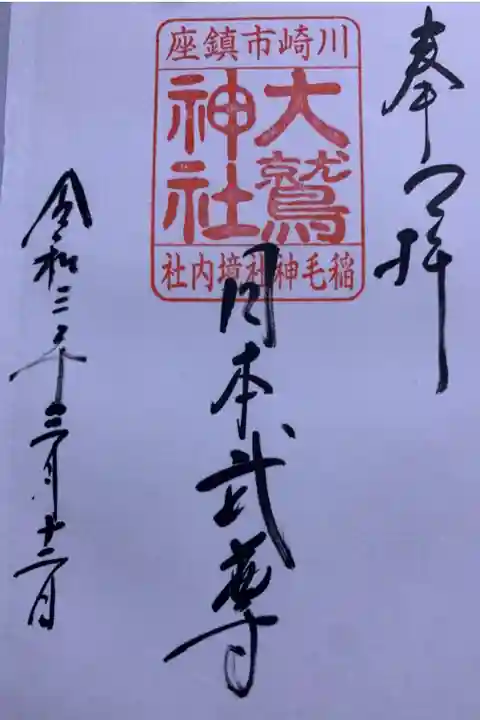 奉拝
川崎市鎮座
大鷲
神社
稲毛神社境内社
日本武尊
令和三年三月十二日